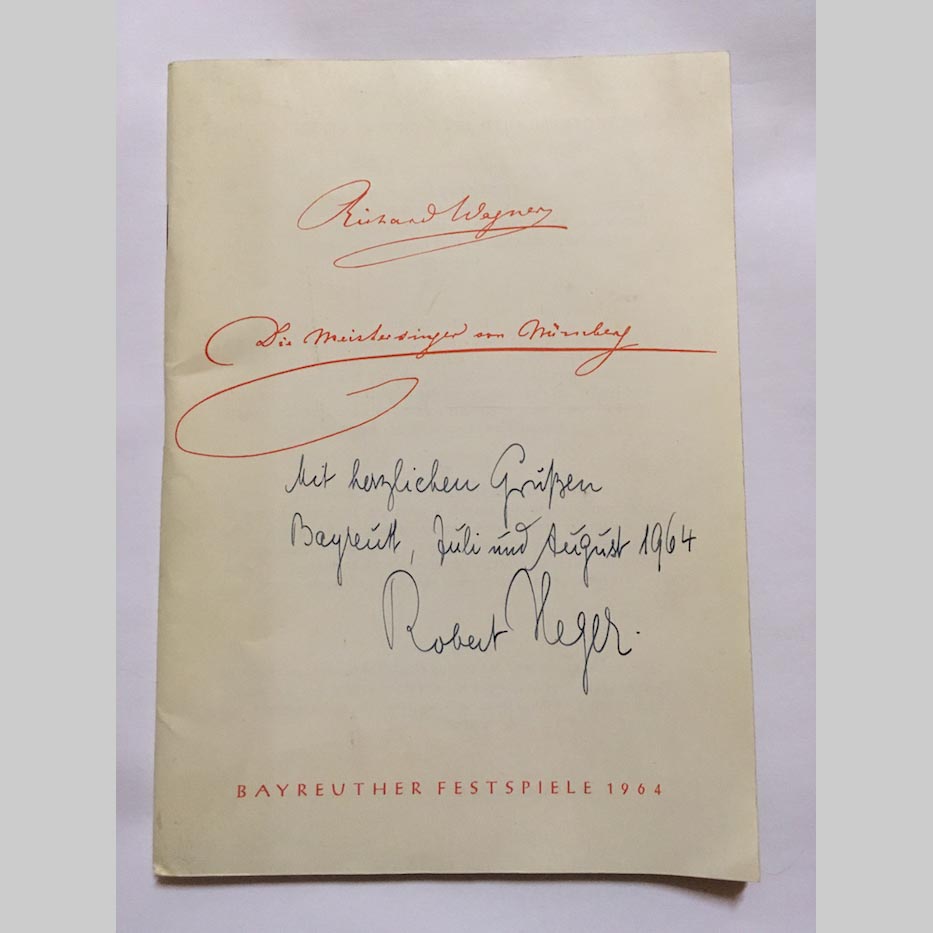 Richard Wagner
Die Meistersinger von Nürnberg
Mit herzlichen Grüßen
Bayreuth, Juli und August 1964
Robert Heger.
BAYREUTHER FESTSPIELE 1964